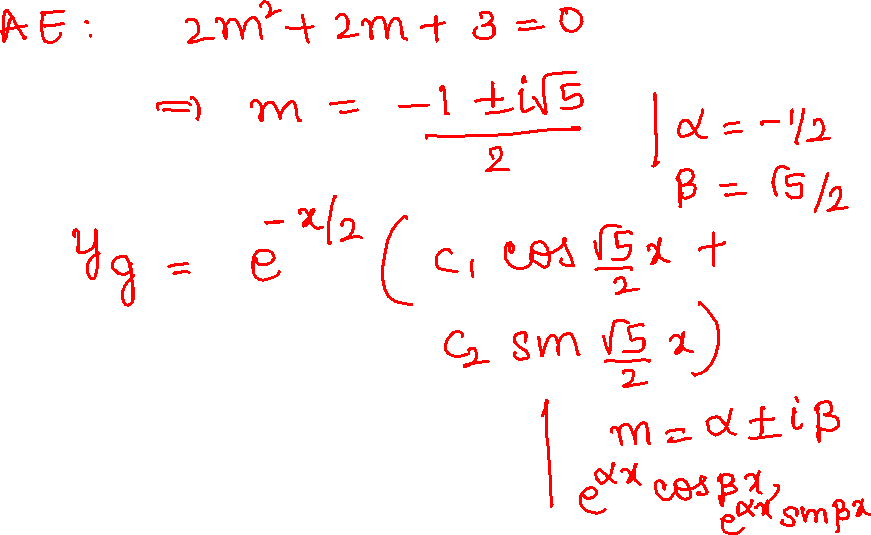 AE: 2m² + 2m + 3 = 0
⇒ m = (-1 ± i√5)/2 | α = -1/2
β = √5/2
y_g = e^(-x/2) ( c₁ cos (√5/2) x +
c₂ sin (√5/2) x )
| m = α ± iβ
e^(αx) cos βx,
e^(αx) sin βx